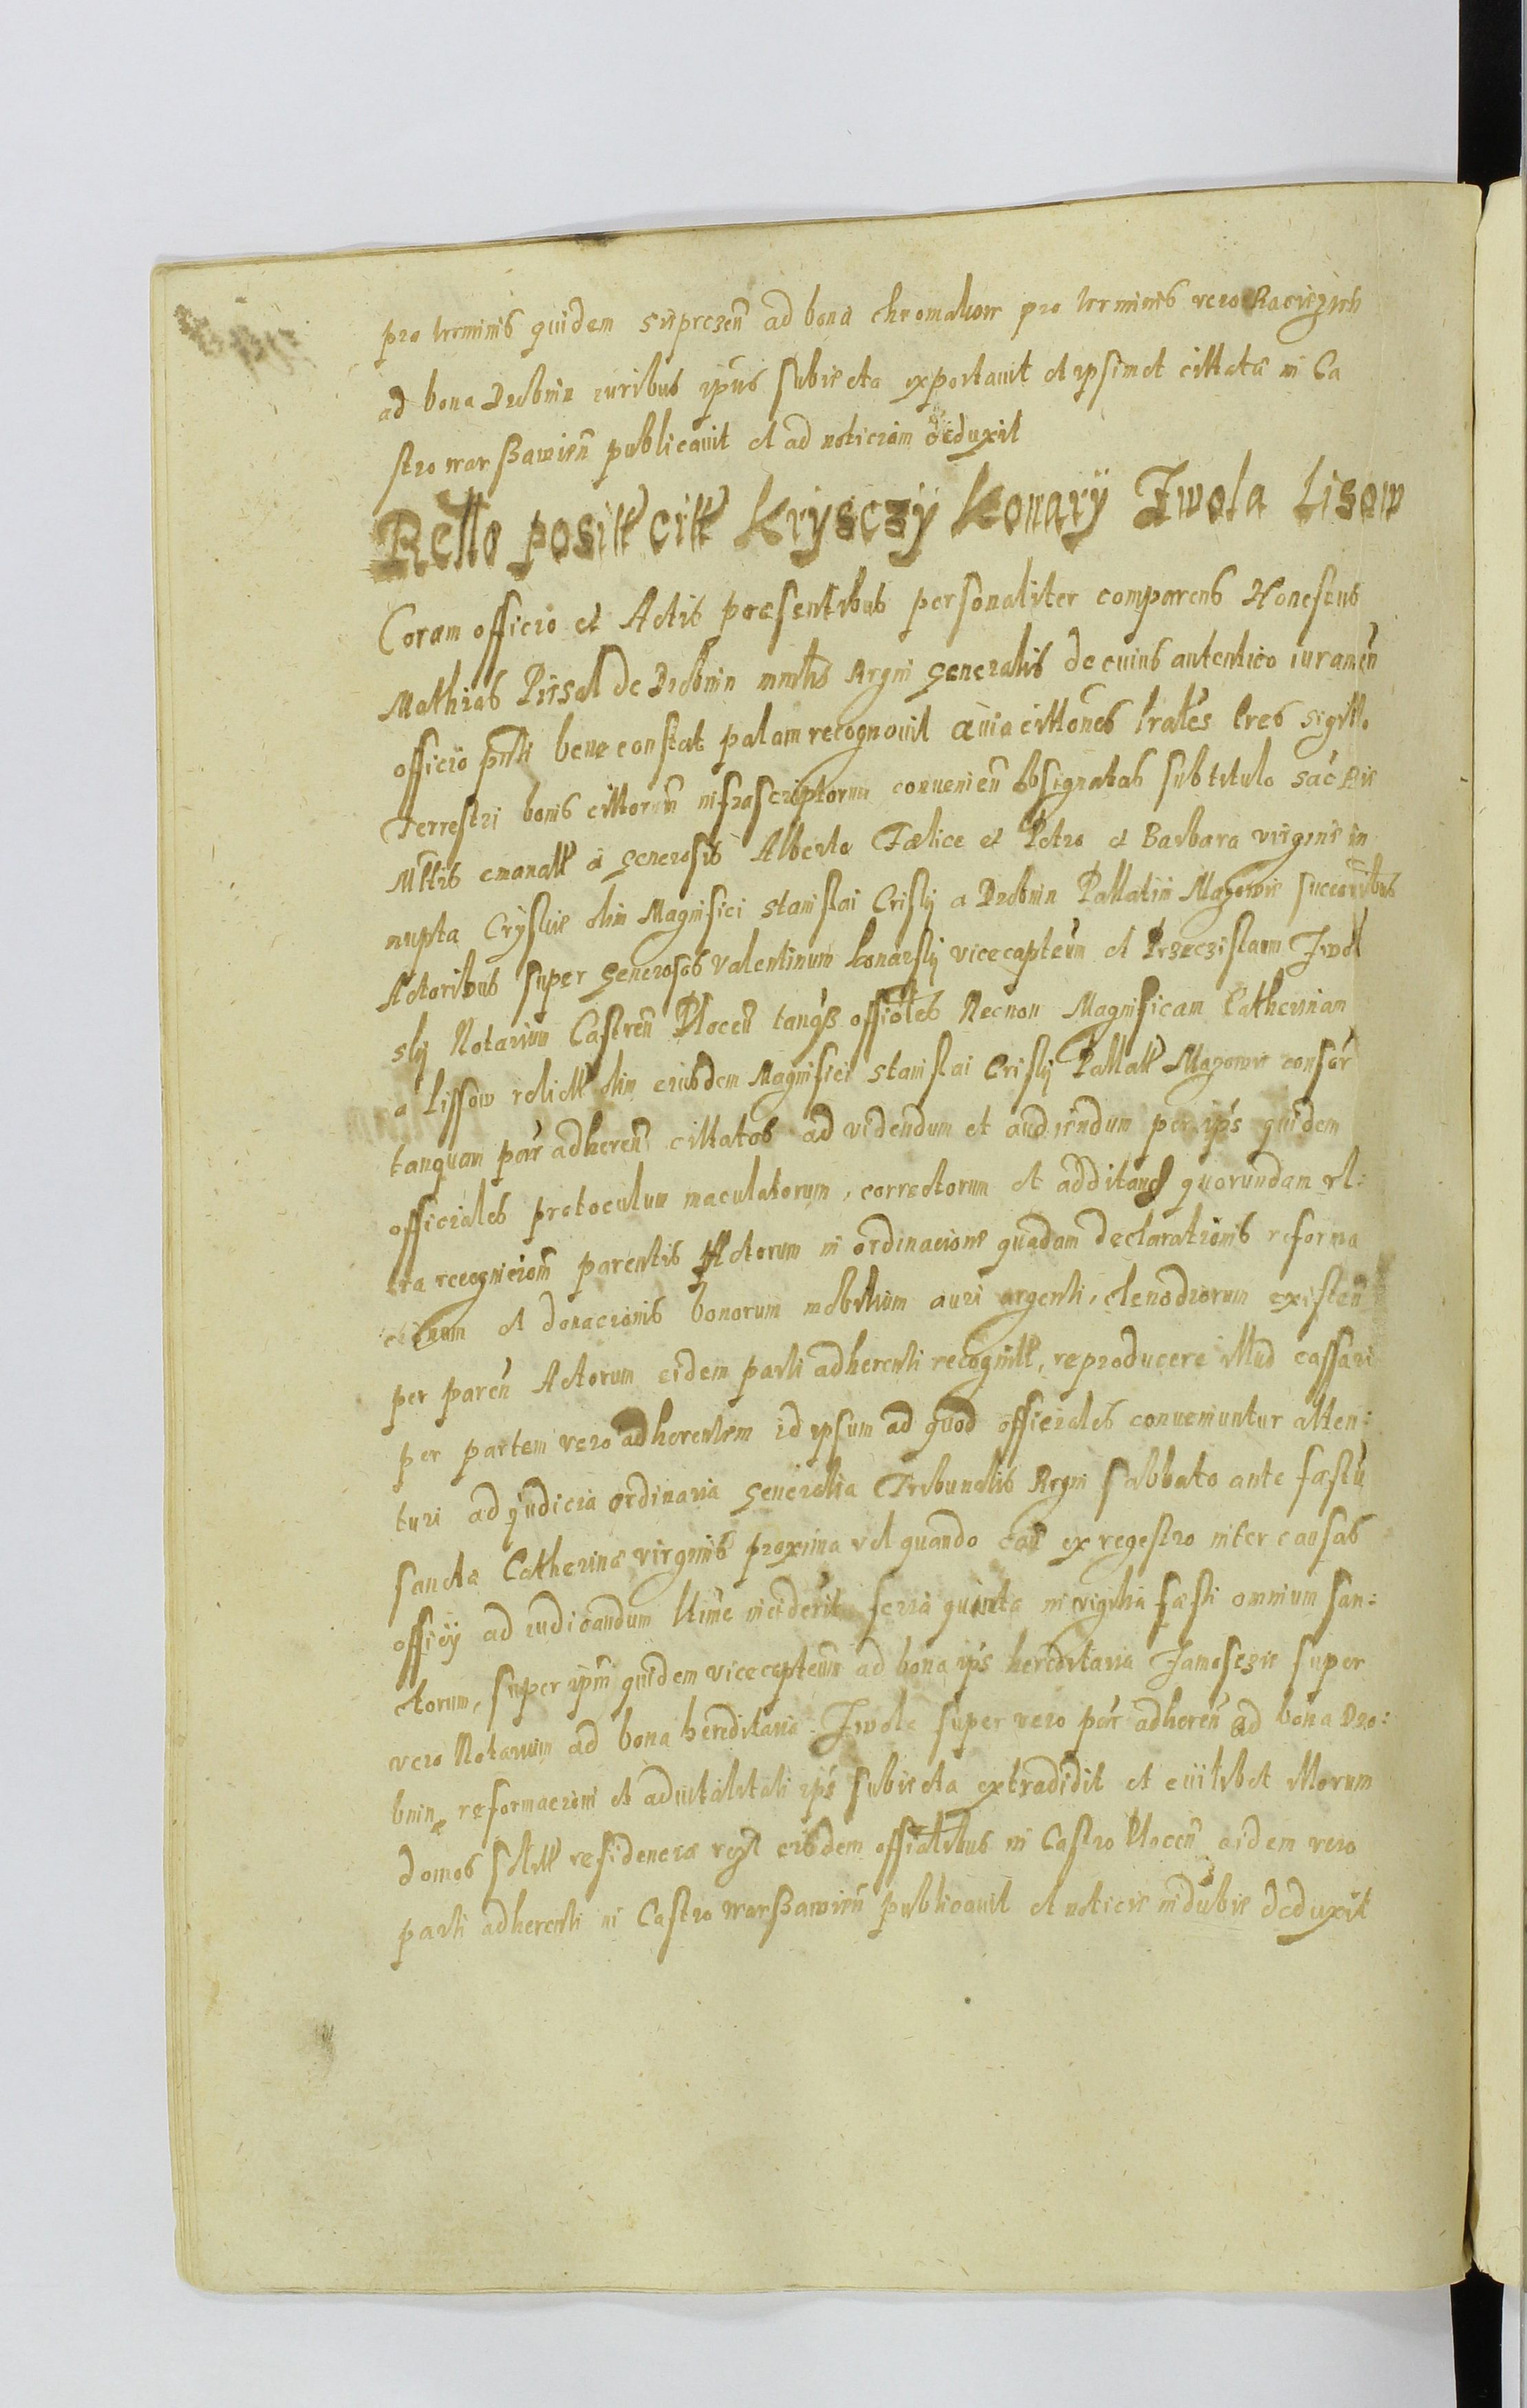 pro terminis quidem Supreczen̄ ad bona Chromakow pro terminis vero Raciężen̄
ad bona Drobnin iuribus ipius subiecta exportavit et ipsimet cittatæ in Ca
stro warßawien̄ publicavit et ad noticiam deduxit
Rello positt citt Krÿsczÿ Konarÿ Iwola Lisow
Coram officio et Actis præsentibus personaliter comparens Honestus
Mathias Pirsal de Drobnin mnlis Regni generalis de cuius autentico iuramen̄
officio pn̄ti bene constat palam recognovit quia cittōnes lrales tres sigillo
Terrestri bonis cittorum̄ infrascriptorum convenien̄ obsignatas sub titulo sac̄ Rie
Mttis emanatt a generosis Alberto Fælice et Petro et Barbara virgine in
nupta Crÿskie olim Magnifici Stanislai Crislÿ a Drobnin Pallatini Mazowie succoribus
Actoribus super generosos Valentinum Konarslÿ vicecapteum et Przeczslaum Iwol
slÿ Notarium Castren̄ Plocen̄ tanq̄ß offioles Necnon Magnificam Catherinam
a Lissow relictt olim eiusdem Magnifici Stanislai Crislÿ Pallatt Mazowie consor̄
tanquam par̄ adheren̄ cittatos ad videndum et audiendum per ip̄s quidem
officiales protoculum maculatorum, correctorum et additaus quorundam vl:
tra recognicion̄m parentis Actorum in ordinacione quadam declarationis reforma
cionum et donacionis bonorum mobilium auri argenti, clenodiorum existen̄
per paren̄ Actorum eidem parti adherenti recognitt, reproducere illud cassari
per partem vero adherentem id ipsum ad quod officiales conveniuntur atten:
turi ad judicia ordinaria generalia Tribunalis Regni sabbato ante fæstū
sanctæ Catherinæ virginis proxima vel quando cau̅ ex regestro inter causas
officÿ ad iudicandum ttime inciderit feria quinta in vigilia fæsti omnium san:
ctorum, super ipm̄ quidem vicecapteum ad bona ip̄s hereditaria Jamoszie super
vero Notarium ad bona hereditaria Iwola super vero par̄ adheren̄ ad bona Dro:
bnin reformacioni et aduitalitati ip̄s subiecta extradidit et cuilibet illorum
domos solitt residenciæ eisdem offialibus in Castro Plocen̄ eidem vero
parti adherenti in Castro warßawien̄ publicavit et noticie indubie deduxit